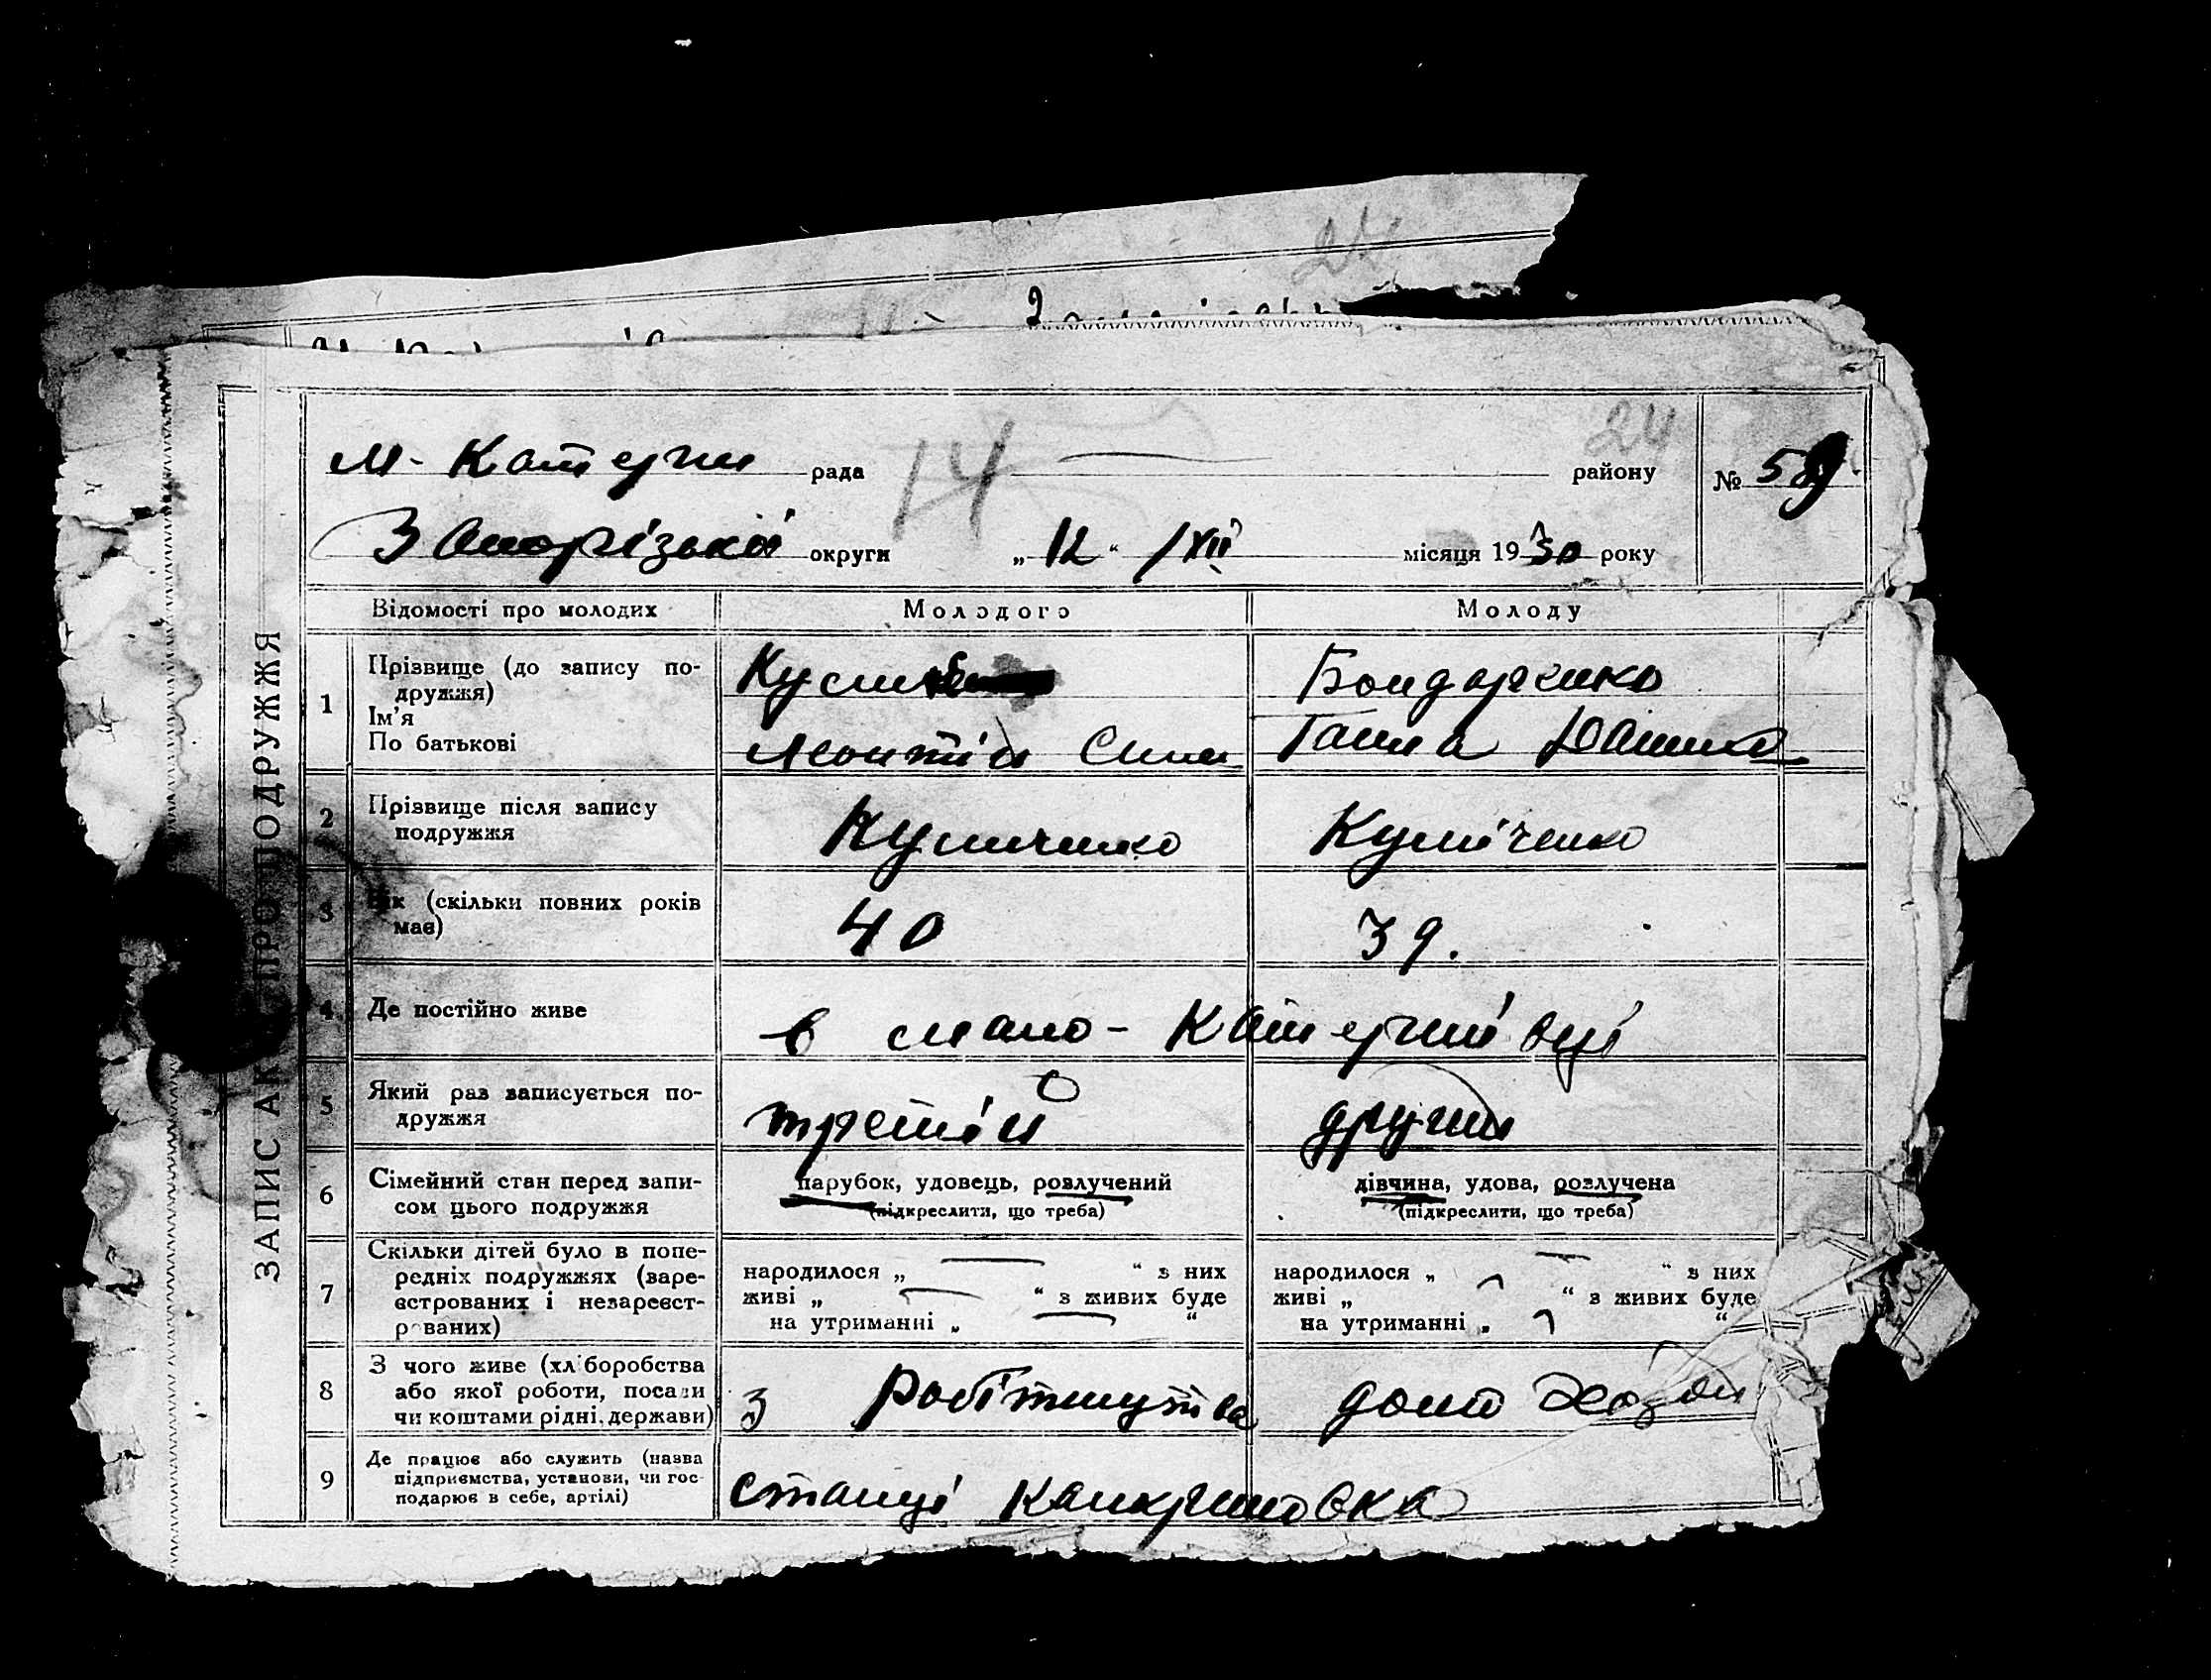 ЗАПИС АКТ ПРО ПОДРУЖЖЯ
24
14
М- Катерин рада району № 59
Запорізької округи „12“ /XII місяця 1930 року
Відомості про молодих Молодого Молоду
1 Прізвище (до запису по-
дружжя)
Ім’я
По батькові
Бондаренко
Леонтій Сим Ганна
2 Прізвище після запису
подружжя
Куличенко Куліченко
3 Вік (скільки повних років
має)
40 39.
4 Де постійно живе в мало-Катеринівці
5 Який раз записується по-
дружжя
третій другий
6 Сімейний стан перед запи-
сом цього подружжя
парубок, удовець, розлучений
(підкреслити, що треба)
дівчина, удова, розлучена
(підкреслити, що треба)
7 Скільки дітей було в попе-
редніх подружжях (заре-
єстрованих і незареєст-
рованих)
народилося „ — “ з них
живі „ — “ з живих буде
на утриманні „ — “
народилося „ — “ з них
живі „ “ з живих буде
на утриманні „ “
8 З чого живе (хліборобства
або якої роботи, посади
чи коштами рідні, держави)
з робітництва дома хозяй
9 Де працює або служить (назва
підприємства, установи, чи гос-
подарює в себе, артілі)
станці Канкриновка